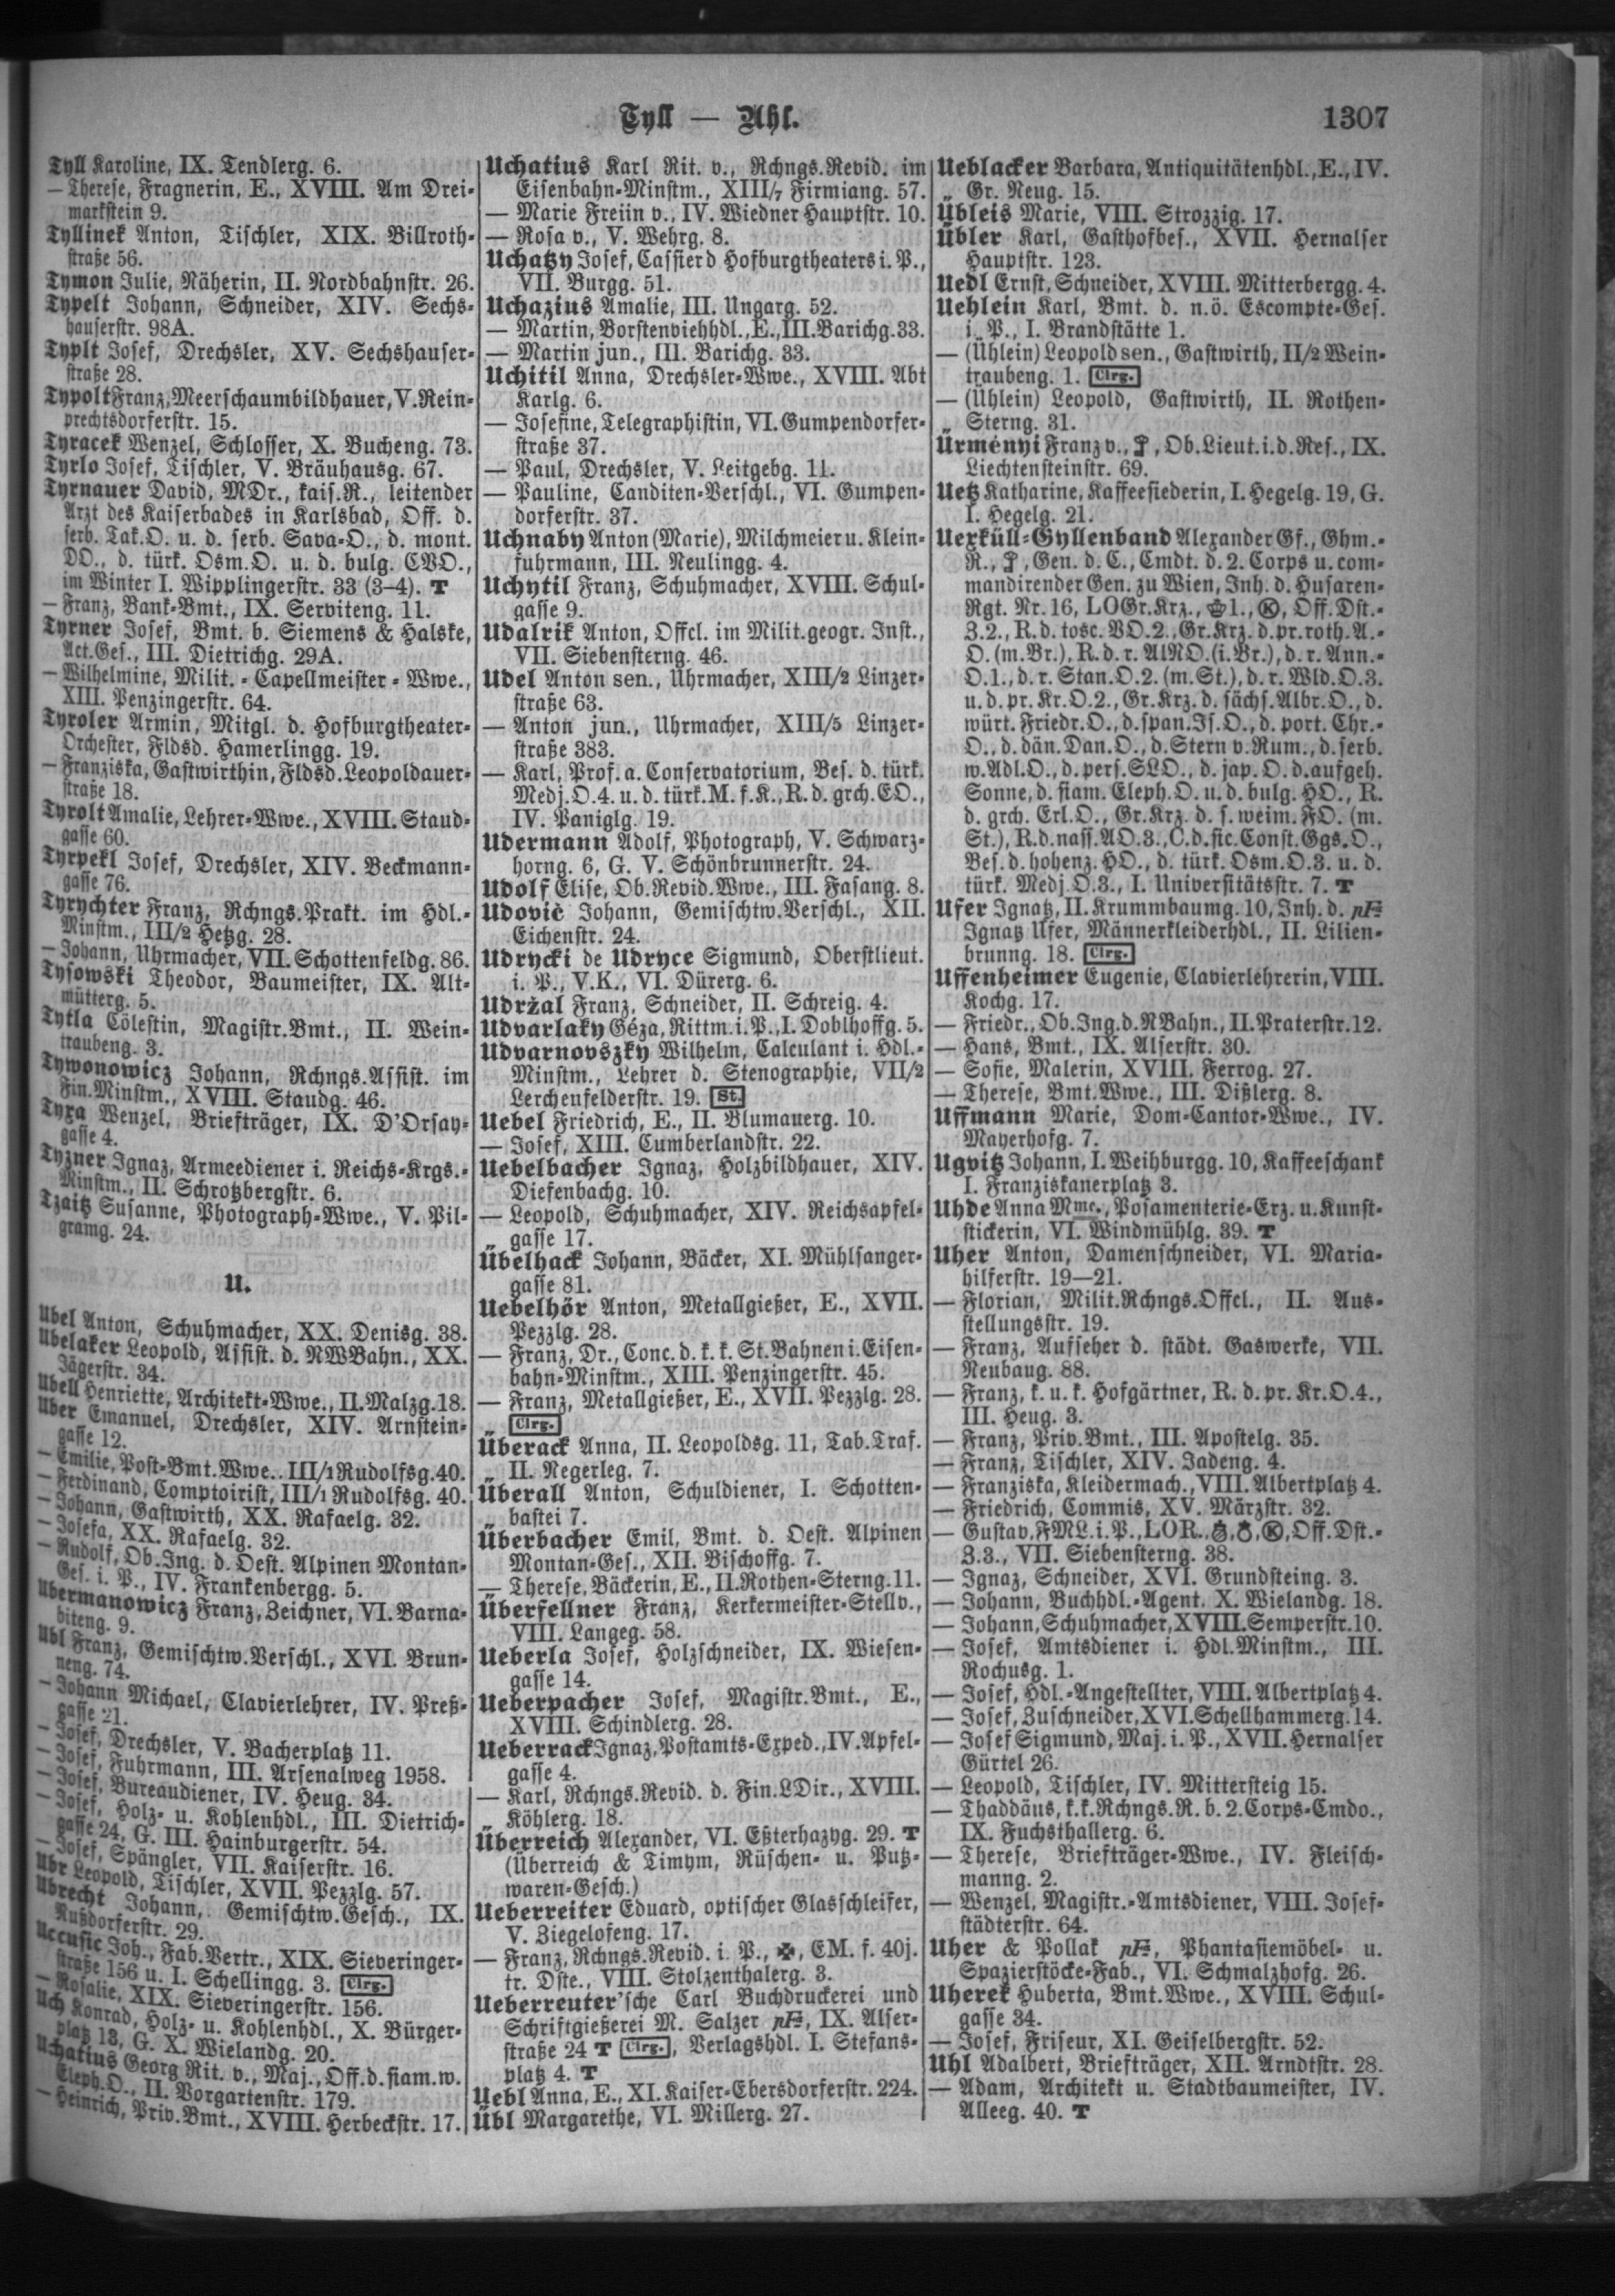 Tyll — Uhl.
1307
Tyll Karoline, IX. Tendlerg. 6.
— Therese, Fragnerin, E., XVIII. Am Drei-
markstein 9.
Tyllinek Anton, Tischler, XIX. Billroth-
straße 56.
Tymon Julie, Näherin, II. Nordbahnstr. 26.
Typelt Johann, Schneider, XIV. Sechs-
hauserstr. 98A.
Typlt Josef, Drechsler, XV. Sechshauser-
straße 28.
Typolt Franz, Meerschaumbildhauer, V. Rein-
prechtsdorferstr. 15.
Tyracek Wenzel, Schlosser, X. Bucheng. 73.
Tyrlo Josef, Tischler, V. Bräuhausg. 67.
Tyrnauer David, MDr., kais.R., leitender
Arzt des Kaiserbades in Karlsbad, Off. d.
serb. Tak.O. u. d. serb. Sava-O., d. mont.
DO., d. türk. Osm.O. u. d. bulg. CVO.,
im Winter I. Wipplingerstr. 33 (3–4). T
— Franz, Bank-Bmt., IX. Serviteng. 11.
Tyrner Josef, Bmt. b. Siemens & Halske,
Act.Ges., III. Dietrichg. 29A.
— Wilhelmine, Milit.-Capellmeister-Wwe.,
XIII. Penzingerstr. 64.
Tyroler Armin, Mitgl. d. Hofburgtheater-
Orchester, Fldsd. Hamerlingg. 19.
— Franziska, Gastwirthin, Fldsd. Leopoldauer-
straße 18.
Tyrolt Amalie, Lehrer-Wwe., XVIII. Staud-
gasse 60.
Tyrpekl Josef, Drechsler, XIV. Beckmann-
gasse 76.
Tyrychter Franz, Rchngs.Prakt. im Hdl.-
Minstm., III/2 Hetzg. 28.
— Johann, Uhrmacher, VII. Schottenfeldg. 86.
Tysowski Theodor, Baumeister, IX. Alt-
mütterg. 5.
Tytla Cölestin, Magistr.Bmt., II. Wein-
traubeng. 3.
Tywonowicz Johann, Rchngs.Assist. im
Fin.Minstm., XVIII. Staudg. 46.
Tyxa Wenzel, Briefträger, IX. D'Orsay-
gasse 4.
Tyzner Ignaz, Armeediener i. Reichs-Krgs.-
Minstm., II. Schrotzbergstr. 6.
Tzaitz Susanne, Photograph-Wwe., V. Pil-
gramg. 24.
U.
Ubel Anton, Schuhmacher, XX. Denisg. 38.
Ubelaker Leopold, Assist. d. NWBahn., XX.
Jägerstr. 34.
Ubell Henriette, Architekt-Wwe., II. Malzg. 18.
Uber Emanuel, Drechsler, XIV. Arnstein-
gasse 12.
— Emilie, Post-Bmt.Wwe., III/1 Rudolfsg. 40.
— Ferdinand, Comptoirist, III/1 Rudolfsg. 40.
— Johann, Gastwirth, XX. Rafaelg. 32.
— Josefa, XX. Rafaelg. 32.
— Rudolf, Ob.Ing. d. Oest. Alpinen Montan-
Ges. i. P., IV. Frankenbergg. 5.
Ubermanowicz Franz, Zeichner, VI. Barna-
biteng. 9.
Ubl Franz, Gemischtw.Verschl., XVI. Brun-
neng. 74.
— Johann Michael, Clavierlehrer, IV. Preß-
gasse 21.
— Josef, Drechsler, V. Bacherplatz 11.
— Josef, Fuhrmann, III. Arsenalweg 1958.
— Josef, Bureaudiener, IV. Heug. 34.
— Josef, Holz- u. Kohlenhdl., III. Dietrich-
gasse 24, G. III. Hainburgerstr. 54.
— Josef, Spängler, VII. Kaiserstr. 16.
Ubr Leopold, Tischler, XVII. Pezzlg. 57.
Ubrecht Johann, Gemischtw.Gesch., IX.
Nußdorferstr. 29.
Uccusic Joh., Fab.Vertr., XIX. Sieveringer-
straße 156 u. I. Schellingg. 3. Clrg.
— Rosalie, XIX. Sieveringerstr. 156.
Uch Konrad, Holz- u. Kohlenhdl., X. Bürger-
platz 13, G. X. Wielandg. 20.
Uchatius Georg Rit. v., Maj., Off.d.siam.w.
Eleph.O., II. Vorgartenstr. 179.
— Heinrich, Priv.Bmt., XVIII. Herbeckstr. 17.
Uchatius Karl Rit. v., Rchngs.Revid. im
Eisenbahn-Minstm., XIII/7 Firmiang. 57.
— Marie Freiin v., IV. Wiedner Hauptstr. 10.
— Rosa v., V. Wehrg. 8.
Uchatzy Josef, Cassier d Hofburgtheaters i. P.,
VII. Burgg. 51.
Uchazius Amalie, III. Ungarg. 52.
— Martin, Borstenviehhdl., E., III. Barichg. 33.
— Martin jun., III. Barichg. 33.
Uchitil Anna, Drechsler-Wwe., XVIII. Abt
Karlg. 6.
— Josefine, Telegraphistin, VI. Gumpendorfer-
straße 37.
— Paul, Drechsler, V. Leitgebg. 11.
— Pauline, Canditen-Verschl., VI. Gumpen-
dorferstr. 37.
Uchnaby Anton (Marie), Milchmeier u. Klein-
fuhrmann, III. Neulingg. 4.
Uchytil Franz, Schuhmacher, XVIII. Schul-
gasse 9.
Udalrik Anton, Offcl. im Milit.geogr. Inst.,
VII. Siebensterng. 46.
Udel Anton sen., Uhrmacher, XIII/2 Linzer-
straße 63.
— Anton jun., Uhrmacher, XIII/5 Linzer-
straße 383.
— Karl, Prof. a. Conservatorium, Bes. d. türk.
Medj.O.4. u. d. türk.M. f.K., R. d. grch.EO.,
IV. Paniglg. 19.
Udermann Adolf, Photograph, V. Schwarz-
horng. 6, G. V. Schönbrunnerstr. 24.
Udolf Elise, Ob.Revid.Wwe., III. Fasang. 8.
Udovič Johann, Gemischtw.Verschl., XII.
Eichenstr. 24.
Udrycki de Udryce Sigmund, Oberstlieut.
i. P., V.K., VI. Dürerg. 6.
Udržal Franz, Schneider, II. Schreig. 4.
Udvarlaky Géza, Rittm. i. P., I. Doblhoffg. 5.
Udvarnovszky Wilhelm, Calculant i. Hdl.-
Minstm., Lehrer d. Stenographie, VII/2
Lerchenfelderstr. 19. St.
Uebel Friedrich, E., II. Blumauerg. 10.
— Josef, XIII. Cumberlandstr. 22.
Uebelbacher Ignaz, Holzbildhauer, XIV.
Diefenbachg. 10.
— Leopold, Schuhmacher, XIV. Reichsapfel-
gasse 17.
Übelhack Johann, Bäcker, XI. Mühlsanger-
gasse 81.
Uebelhör Anton, Metallgießer, E., XVII.
Pezzlg. 28.
— Franz, Dr., Conc. d. k. k. St.Bahnen i. Eisen-
bahn-Minstm., XIII. Penzingerstr. 45.
— Franz, Metallgießer, E., XVII. Pezzlg. 28.
Clrg.
Überack Anna, II. Leopoldsg. 11, Tab.Traf.
II. Negerleg. 7.
Überall Anton, Schuldiener, I. Schotten-
bastei 7.
Überbacher Emil, Bmt. d. Oest. Alpinen
Montan-Ges., XII. Bischoffg. 7.
— Therese, Bäckerin, E., II. Rothen-Sterng. 11.
Überfellner Franz, Kerkermeister-Stellv.,
VIII. Langeg. 58.
Ueberla Josef, Holzschneider, IX. Wiesen-
gasse 14.
Ueberpacher Josef, Magistr.Bmt., E.,
XVIII. Schindlerg. 28.
Ueberrack Ignaz, Postamts-Exped., IV. Apfel-
gasse 4.
— Karl, Rchngs.Revid. d. Fin.LDir., XVIII.
Köhlerg. 18.
Überreich Alexander, VI. Eßterhazyg. 29. T
(Überreich & Timym, Rüschen- u. Putz-
waren-Gesch.)
Ueberreiter Eduard, optischer Glasschleifer,
V. Ziegelofeng. 17.
— Franz, Rchngs.Revid. i. P., ✠, EM. f. 40j.
tr. Dste., VIII. Stolzenthalerg. 3.
Ueberreuter'sche Carl Buchdruckerei und
Schriftgießerei M. Salzer pFa, IX. Alser-
straße 24 T Clrg., Verlagshdl. I. Stefans-
platz 4. T
Uebl Anna, E., XI. Kaiser-Ebersdorferstr. 224.
Übl Margarethe, VI. Millerg. 27.
Ueblacker Barbara, Antiquitätenhdl., E., IV.
Gr. Neug. 15.
Übleis Marie, VIII. Strozzig. 17.
Übler Karl, Gasthofbes., XVII. Hernalser
Hauptstr. 123.
Uedl Ernst, Schneider, XVIII. Mitterbergg. 4.
Uehlein Karl, Bmt. d. n.ö. Escompte-Ges.
i. P., I. Brandstätte 1.
— (Ühlein) Leopold sen., Gastwirth, II/2 Wein-
traubeng. 1. Clrg.
— (Ühlein) Leopold, Gastwirth, II. Rothen-
Sterng. 31.
Ürményi Franz v., Ob.Lieut.i.d.Res., IX.
Liechtensteinstr. 69.
Uetz Katharine, Kaffeesiederin, I. Hegelg. 19, G.
I. Hegelg. 21.
Uexküll-Gyllenband Alexander Gf., Ghm.-
R., Gen. d. C., Cmdt. d. 2. Corps u. com-
mandirender Gen. zu Wien, Inh. d. Husaren-
Rgt. Nr. 16, LOGr.Krz., 1., Ⓚ, Off.Dst.-
Z.2., R. d. tosc. VO.2., Gr.Krz. d.pr.roth.A.-
O. (m.Br.), R.d. r. AlNO.(i.Br.), d. r. Ann.-
O.1., d. r. Stan.O.2. (m.St.), d. r. Wld.O.3.
u. d. pr. Kr.O.2., Gr.Krz. d. sächs.Albr.O., d.
würt. Friedr.O., d. span.Is.O., d. port. Chr.-
O., d. dän. Dan.O., d. Stern v. Rum., d. serb.
w.Adl.O., d. pers.SLO., d. jap. O. d.aufgeh.
Sonne, d. siam. Eleph.O. u. d. bulg. HO., R.
d. grch. Erl.O., Gr.Krz. d. s. weim. FO. (m.
St.), R.d.nass.AO.3., C.d.sic.Const.Ggs.O.,
Bes. d. hohenz. HO., d. türk. Osm.O.3. u. d.
türk. Medj.O.3., I. Universitätsstr. 7. T
Ufer Ignatz, II. Krummbaumg. 10, Inh. d. pFa
Ignatz Ufer, Männerkleiderhdl., II. Lilien-
brunng. 18. Clrg.
Uffenheimer Eugenie, Clavierlehrerin, VIII.
Kochg. 17.
— Friedr., Ob.Ing.d.NBahn., II. Praterstr. 12.
— Hans, Bmt., IX. Alserstr. 30.
— Sofie, Malerin, XVIII. Ferrog. 27.
— Therese, Bmt.Wwe., III. Dißlerg. 8.
Uffmann Marie, Dom-Cantor-Wwe., IV.
Mayerhofg. 7.
Ugvitz Johann, I. Weihburgg. 10, Kaffeeschank
I. Franziskanerplatz 3.
Uhde Anna Mme., Posamenterie-Erz. u. Kunst-
stickerin, VI. Windmühlg. 39. T
Uher Anton, Damenschneider, VI. Maria-
hilferstr. 19—21.
— Florian, Milit.Rchngs.Offcl., II. Aus-
stellungsstr. 19.
— Franz, Aufseher d. städt. Gaswerke, VII.
Neubaug. 88.
— Franz, k. u. k. Hofgärtner, R. d. pr. Kr.O.4.,
III. Heug. 3.
— Franz, Priv.Bmt., III. Apostelg. 35.
— Franz, Tischler, XIV. Jadeng. 4.
— Franziska, Kleidermach., VIII. Albertplatz 4.
— Friedrich, Commis, XV. Märzstr. 32.
— Gustav, FML. i. P., LOR., Ⓚ, Off.Dst.-
Z.3., VII. Siebensterng. 38.
— Ignaz, Schneider, XVI. Grundsteing. 3.
— Johann, Buchhdl.-Agent. X. Wielandg. 18.
— Johann, Schuhmacher, XVIII. Semperstr. 10.
— Josef, Amtsdiener i. Hdl.Minstm., III.
Rochusg. 1.
— Josef, Hdl.-Angestellter, VIII. Albertplatz 4.
— Josef, Zuschneider, XVI. Schellhammerg. 14.
— Josef Sigmund, Maj. i. P., XVII. Hernalser
Gürtel 26.
— Leopold, Tischler, IV. Mittersteig 15.
— Thaddäus, k.k.Rchngs.R. b. 2.Corps-Cmdo.,
IX. Fuchsthallerg. 6.
— Therese, Briefträger-Wwe., IV. Fleisch-
manng. 2.
— Wenzel, Magistr.-Amtsdiener, VIII. Josef-
städterstr. 64.
Uher & Pollak pFa, Phantasiemöbel- u.
Spazierstöcke-Fab., VI. Schmalzhofg. 26.
Uherek Huberta, Bmt.Wwe., XVIII. Schul-
gasse 34.
— Josef, Friseur, XI. Geiselbergstr. 52.
Uhl Adalbert, Briefträger, XII. Arndtstr. 28.
— Adam, Architekt u. Stadtbaumeister, IV.
Alleeg. 40. T